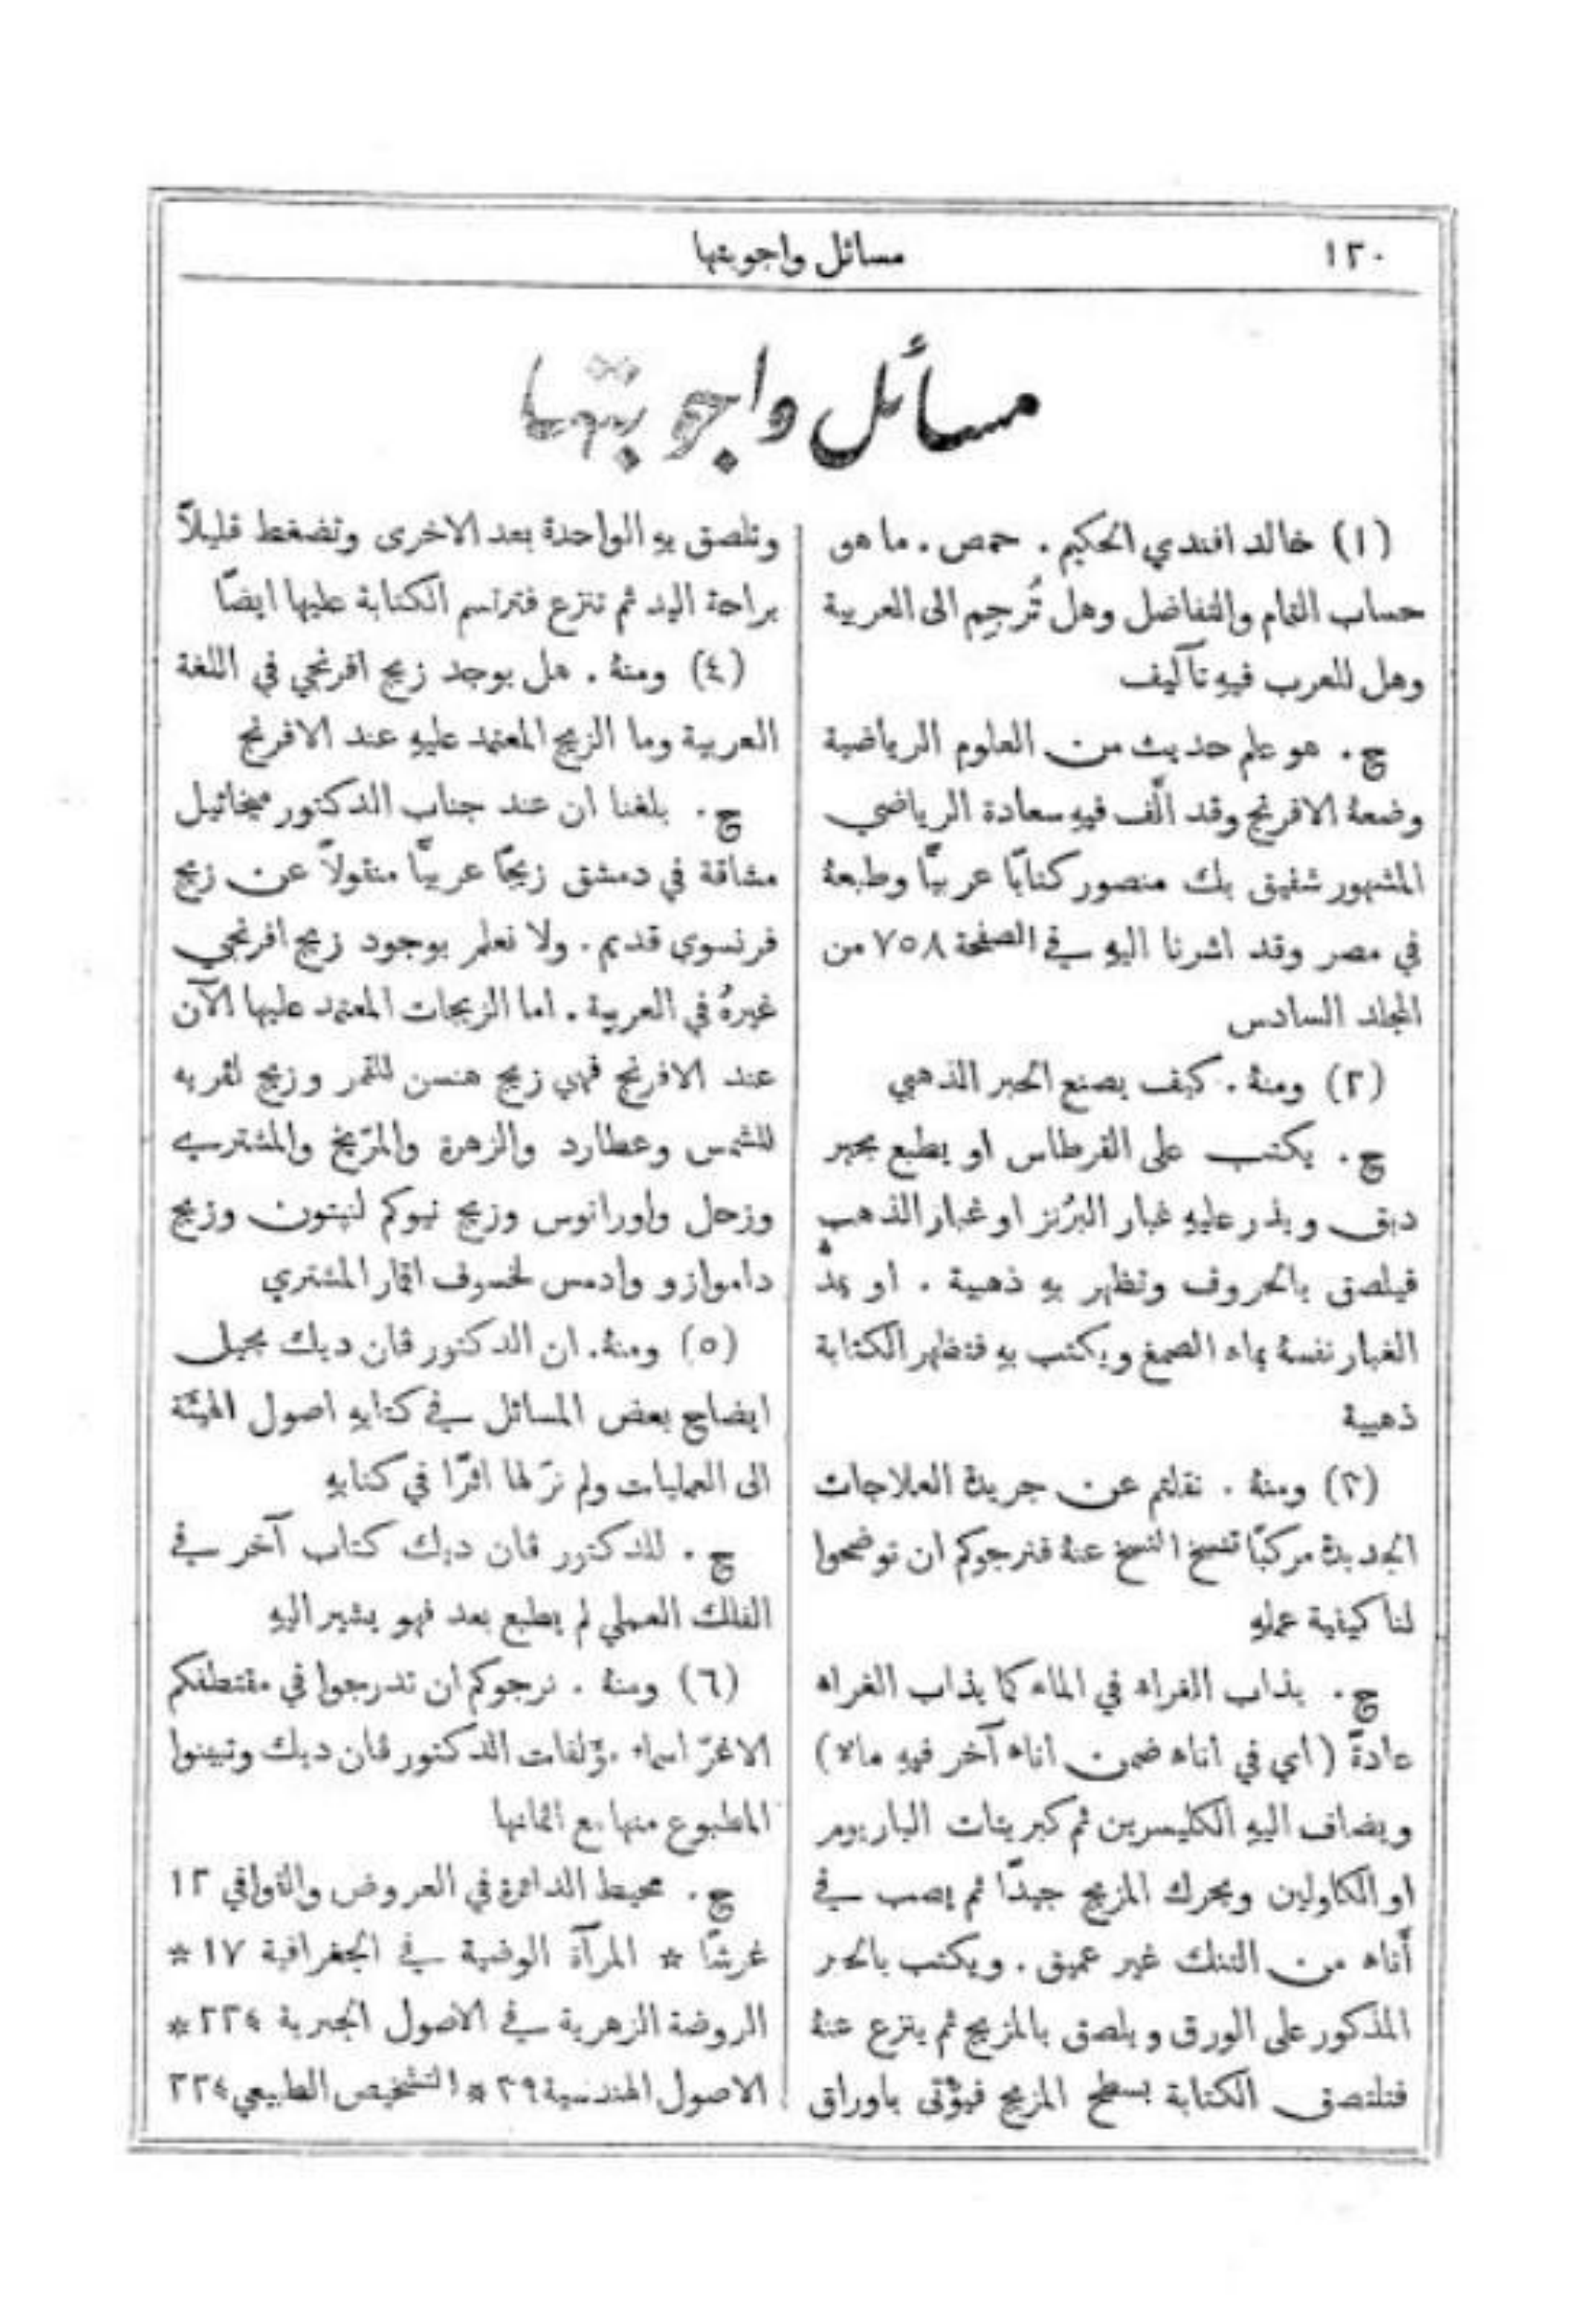 ١٢٠
مسائل واجوبتها
مسائل واجوبتها
(١) خالد افندي الحكيم . حمص . ما هو
حساب التمام والتفاضل وهل تُرجِم الى العربية
وهل للعرب فيهِ تآليف
ج . هو علم حديث من العلوم الرياضية
وضعهُ الافرنج وقد الَّف فيهِ سعادة الرياضي
المشهور شفيق بك منصور كتابًا عربيًّا وطبعهُ
في مصر وقد اشرنا اليهِ في الصفحة ٧٥٨ من
المجلد السادس
(٢) ومنهُ . كيف يصنع الحبر الذهبي
ج . يكتب على القرطاس او يطبع بحبر
دبق ويذر عليهِ غبار البرُنز او غبار الذهب
فيلصق بالحروف وتظهر بهِ ذهبية . او يمذّ
الغبار نفسهُ بماء الصمغ ويكتب بهِ فتظهر الكتابة
ذهبية
(٣) ومنهُ . نقلتم عن جريدة العلاجات
الجديدة مركبًا تنسخ النسخ عنهُ فنرجوكم ان توضحوا
لنا كيفية عملهِ
ج . يذاب الغراء في الماء كما يذاب الغراء
عادةً (اي في اناء ضمن اناء آخر فيهِ ماء)
ويضاف اليهِ الكليسرين ثم كبريتات الباريوم
او الكاولين ويحرك المزيج جيدًا ثم يصب في
أناء من التنك غير عميق . ويكتب بالحبر
المذكور على الورق ويلصق بالمزيج ثم ينزع عنهُ
فتلتصق الكتابة بسطح المزيج فيؤْتى باوراق
وتلصق بهِ الواحدة بعد الاخرى وتضغط قليلاً
براحة اليد ثم تنزع فترتسم الكتابة عليها ايضًا
(٤) ومنهُ . هل يوجد زيج افرنجي في اللغة
العربية وما الزيج المعتمد عليهِ عند الافرنج
ج . بلغنا ان عند جناب الدكتور ميخائيل
مشاقة في دمشق زيجًا عربيًّا منقولاً عن زيج
فرنسوي قديم . ولا نعلم بوجود زيج افرنجي
غيرهُ في العربية . اما الزيجات المعتمد عليها الآن
عند الافرنج فهي زيج هنسن للقمر وزيج لڤريه
للشمس وعطارد والزهرة والمرّيخ والمشتري
وزحل واورانوس وزيج نيوكم لنپتون وزيج
داموازو وادمس لخسوف اقمار المشتري
(٥) ومنهُ . ان الدكتور ڤان ديك يحيل
ايضاح بعض المسائل في كتابهِ اصول الهيئة
الى العمليات ولم نرَ لها اثرًا في كتابهِ
ج . للدكتور ڤان ديك كتاب آخر في
الفلك العملي لم يطبع بعد فهو يشير اليهِ
(٦) ومنهُ . نرجوكم ان تدرجوا في مقتطفكم
الاغرّ اسماء مؤَلفات الدكتور ڤان ديك وتبينوا
المطبوع منها مع اثمانها
ج . محيط الدائرة في العروض والقوافي ١٢
غرشًا * المرآة الوضية في الجغرافية ١٧ *
الروضة الزهرية في الاصول الجبرية ٢٢¼ *
الاصول الهندسية ٢٩ * التشخيص الطبيعي ٢٢¼